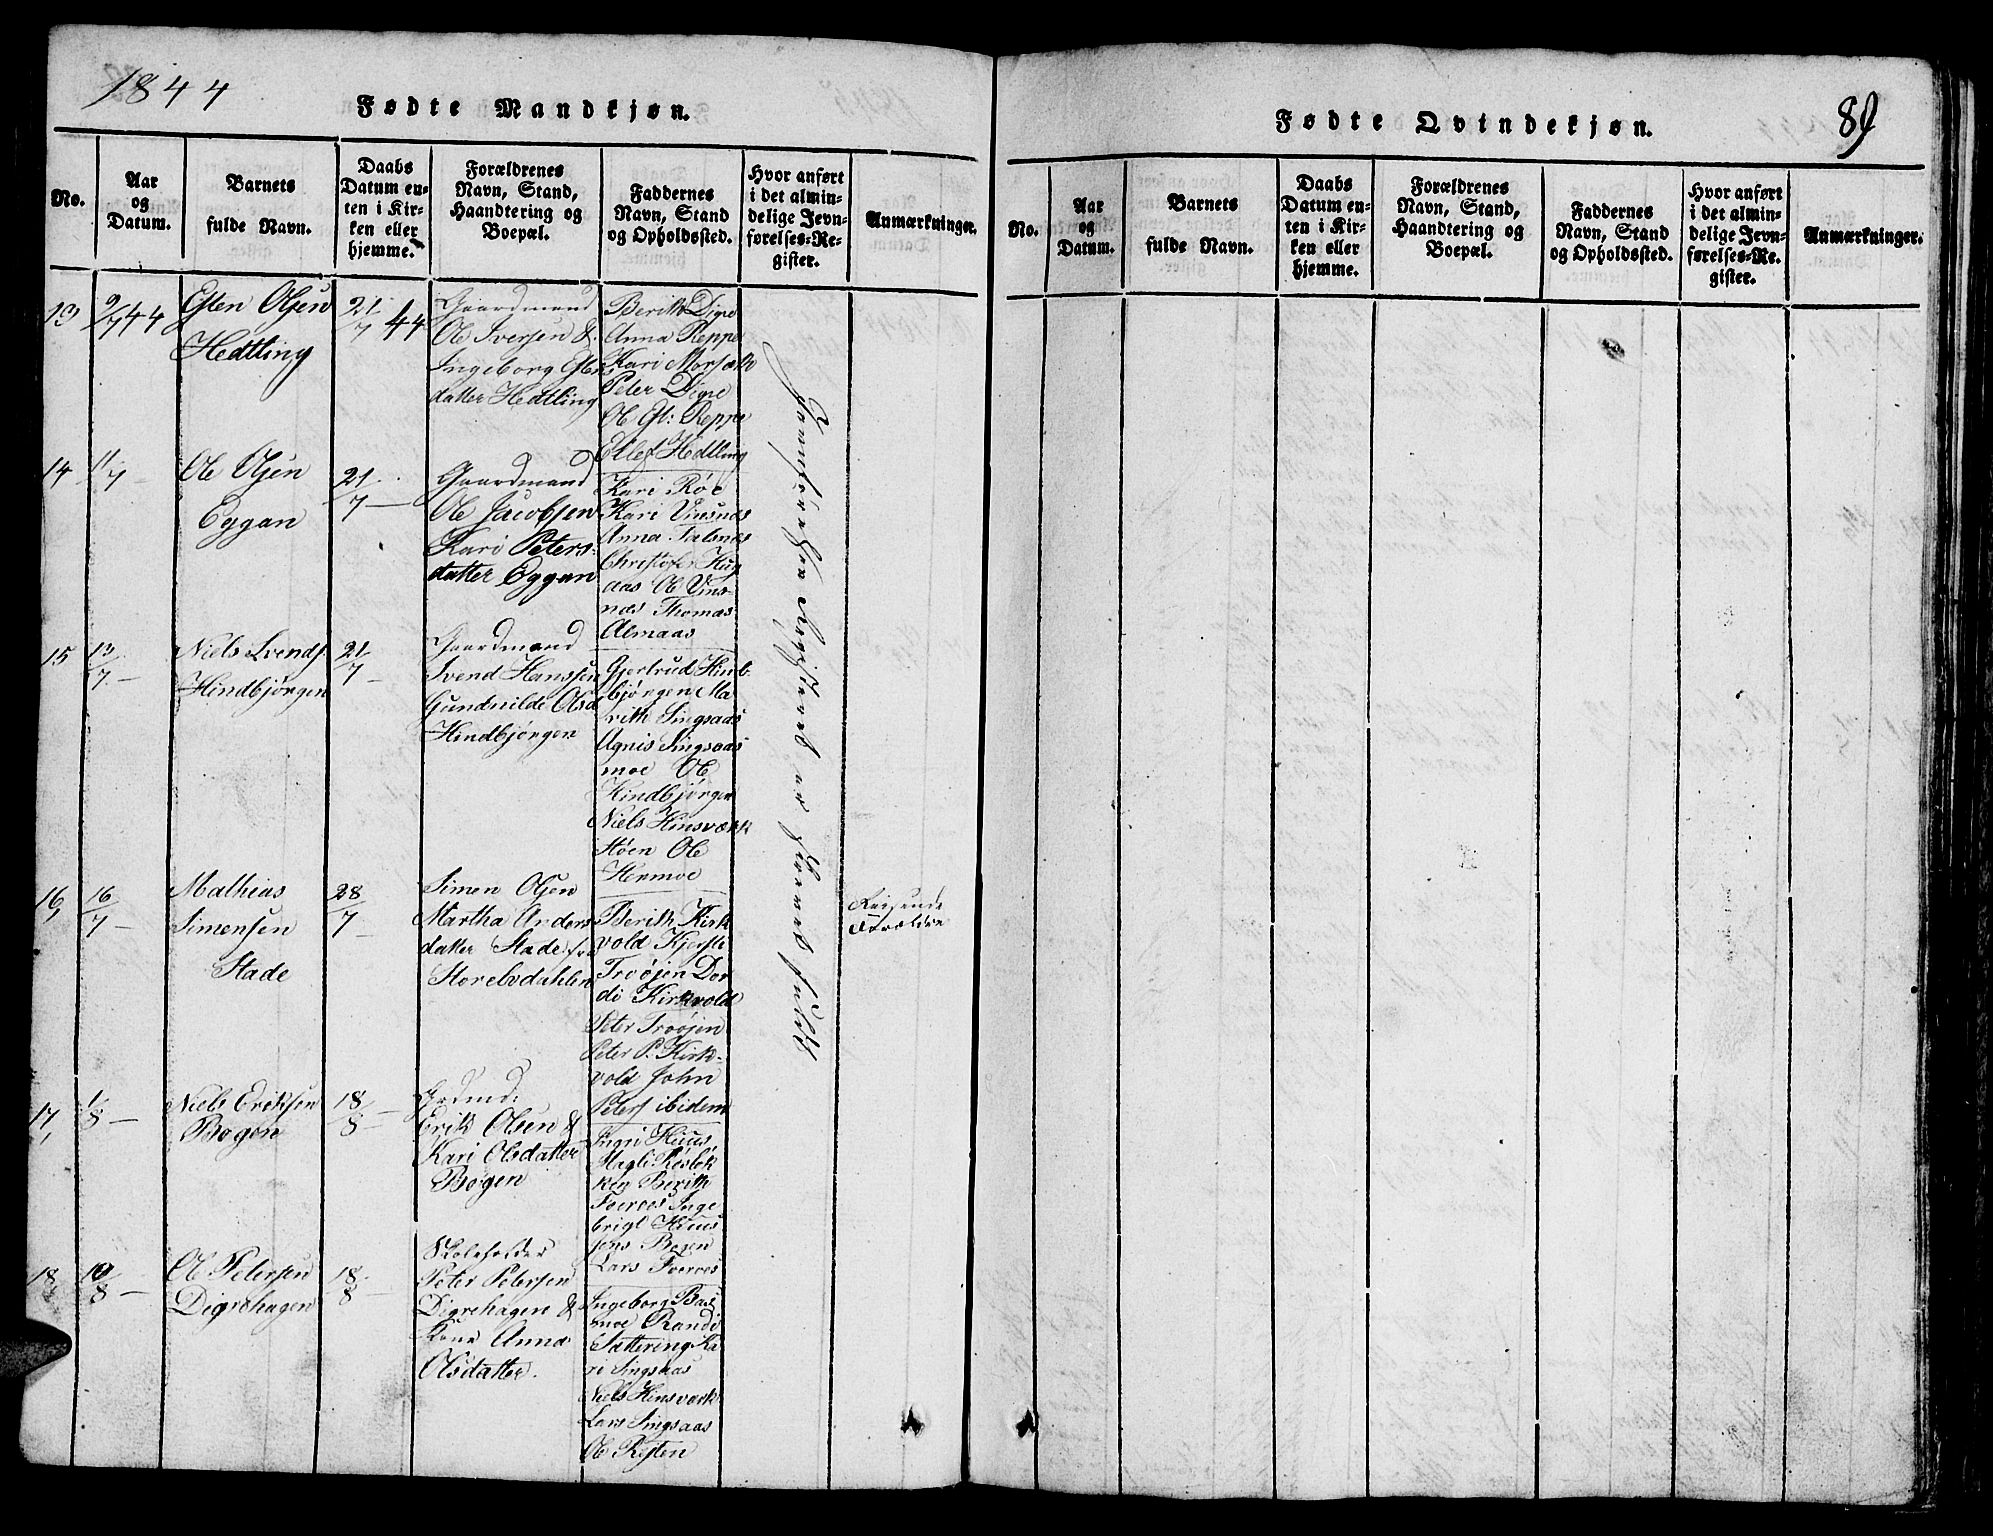 1844
Fødte Mandkjøn.
No.
Aar
og
Datum.
Barnets
fulde Navn.
Daabs
Datum en-
ten i Kir-
ken eller
hjemme.
Forældrenes
Navn, Stand,
Haandtering og
Boepæl.
Faddernes
Navn, Stand
og Opholdssted.
Hvor anført
i det almin-
delige Jevn-
førelses-Re-
gister.
Anmærkninger.
13
9/7 44
Esten Olsen
Hedtling
21/7 44
Gaardmand
Ole Iversen &
Ingeborg Esten
datter Hedtling
Berith Digre
Anna Reppe
Kari Morsæth
Peter Digre
Ole Est: Reppe
Ellef Hedtling
14
11/7 —
Ole Olsen
Eggan
21/7 —
Gaardmand
Ole Jacobsen
Kari Peters-
datter Eggan
Kari Røe
Kari Vinsnes
Anna Talsnes
Christofer Hug
aas Ole Vins-
nes Thomas
Almaas
15
13/7 —
Niels Svends.
Hindbjørgen
21/7 —
Gaardmand
Svend Hanssen
Gundnilde Olsd
Hindbjørgen
Gjertrud Hind
bjørgen Ma
rith Singsaas
Agnis Singsaas
moe Ole
Hindbjørgen
Niels Hinsværk
støen Ole
Henmoe
16,
16/7 —
Mathias
Simensen
Stade
28/7 —
Simen Olsen
Martha Anders
datter Stade fra
Storelvdahlen
Berith Kirk
vold Kjersti
Troøjen Dor
di Kirkvold
Peter Troøjen
Peter P. Kirk-
vold John
Peters ibidem
Reisende
Forældre
17,
1/8 —
Niels Eriksen
Bogen
18/8 —
Grdmd:
Erik Olsen &
Kari Olsdatter
Bogen
Ingri Huus
Magli Røslok
ken Berith
Foeroes Inge
brigt Huus
Jens Bogen
Lars Foeroes
18
10/8 —
Ole Petersen
Digrehagen
18/8 —
Skoleholder
Peter Petersen
Digrehagen &
Kone Anna
Olsdatter.
Ingeborg Bas
moe Randi
Sættering Ka
ri Singsaas
Niels Hinsværk
Lars Singsaas
Ole Resten
Jevnførelses Registeret er skrevet fuldt
Fødte Qvindekjøn.
89
No.
Aar
og
Datum.
Barnets
fulde Navn.
Daabs
Datum en-
ten i Kir-
ken eller
hjemme.
Forældrenes
Navn, Stand,
Haandtering og
Boepæl.
Faddernes
Navn, Stand
og Opholdssted.
Hvor anført
i det almin-
delige Jevn-
førelses-Re-
gister.
Anmærkninger.